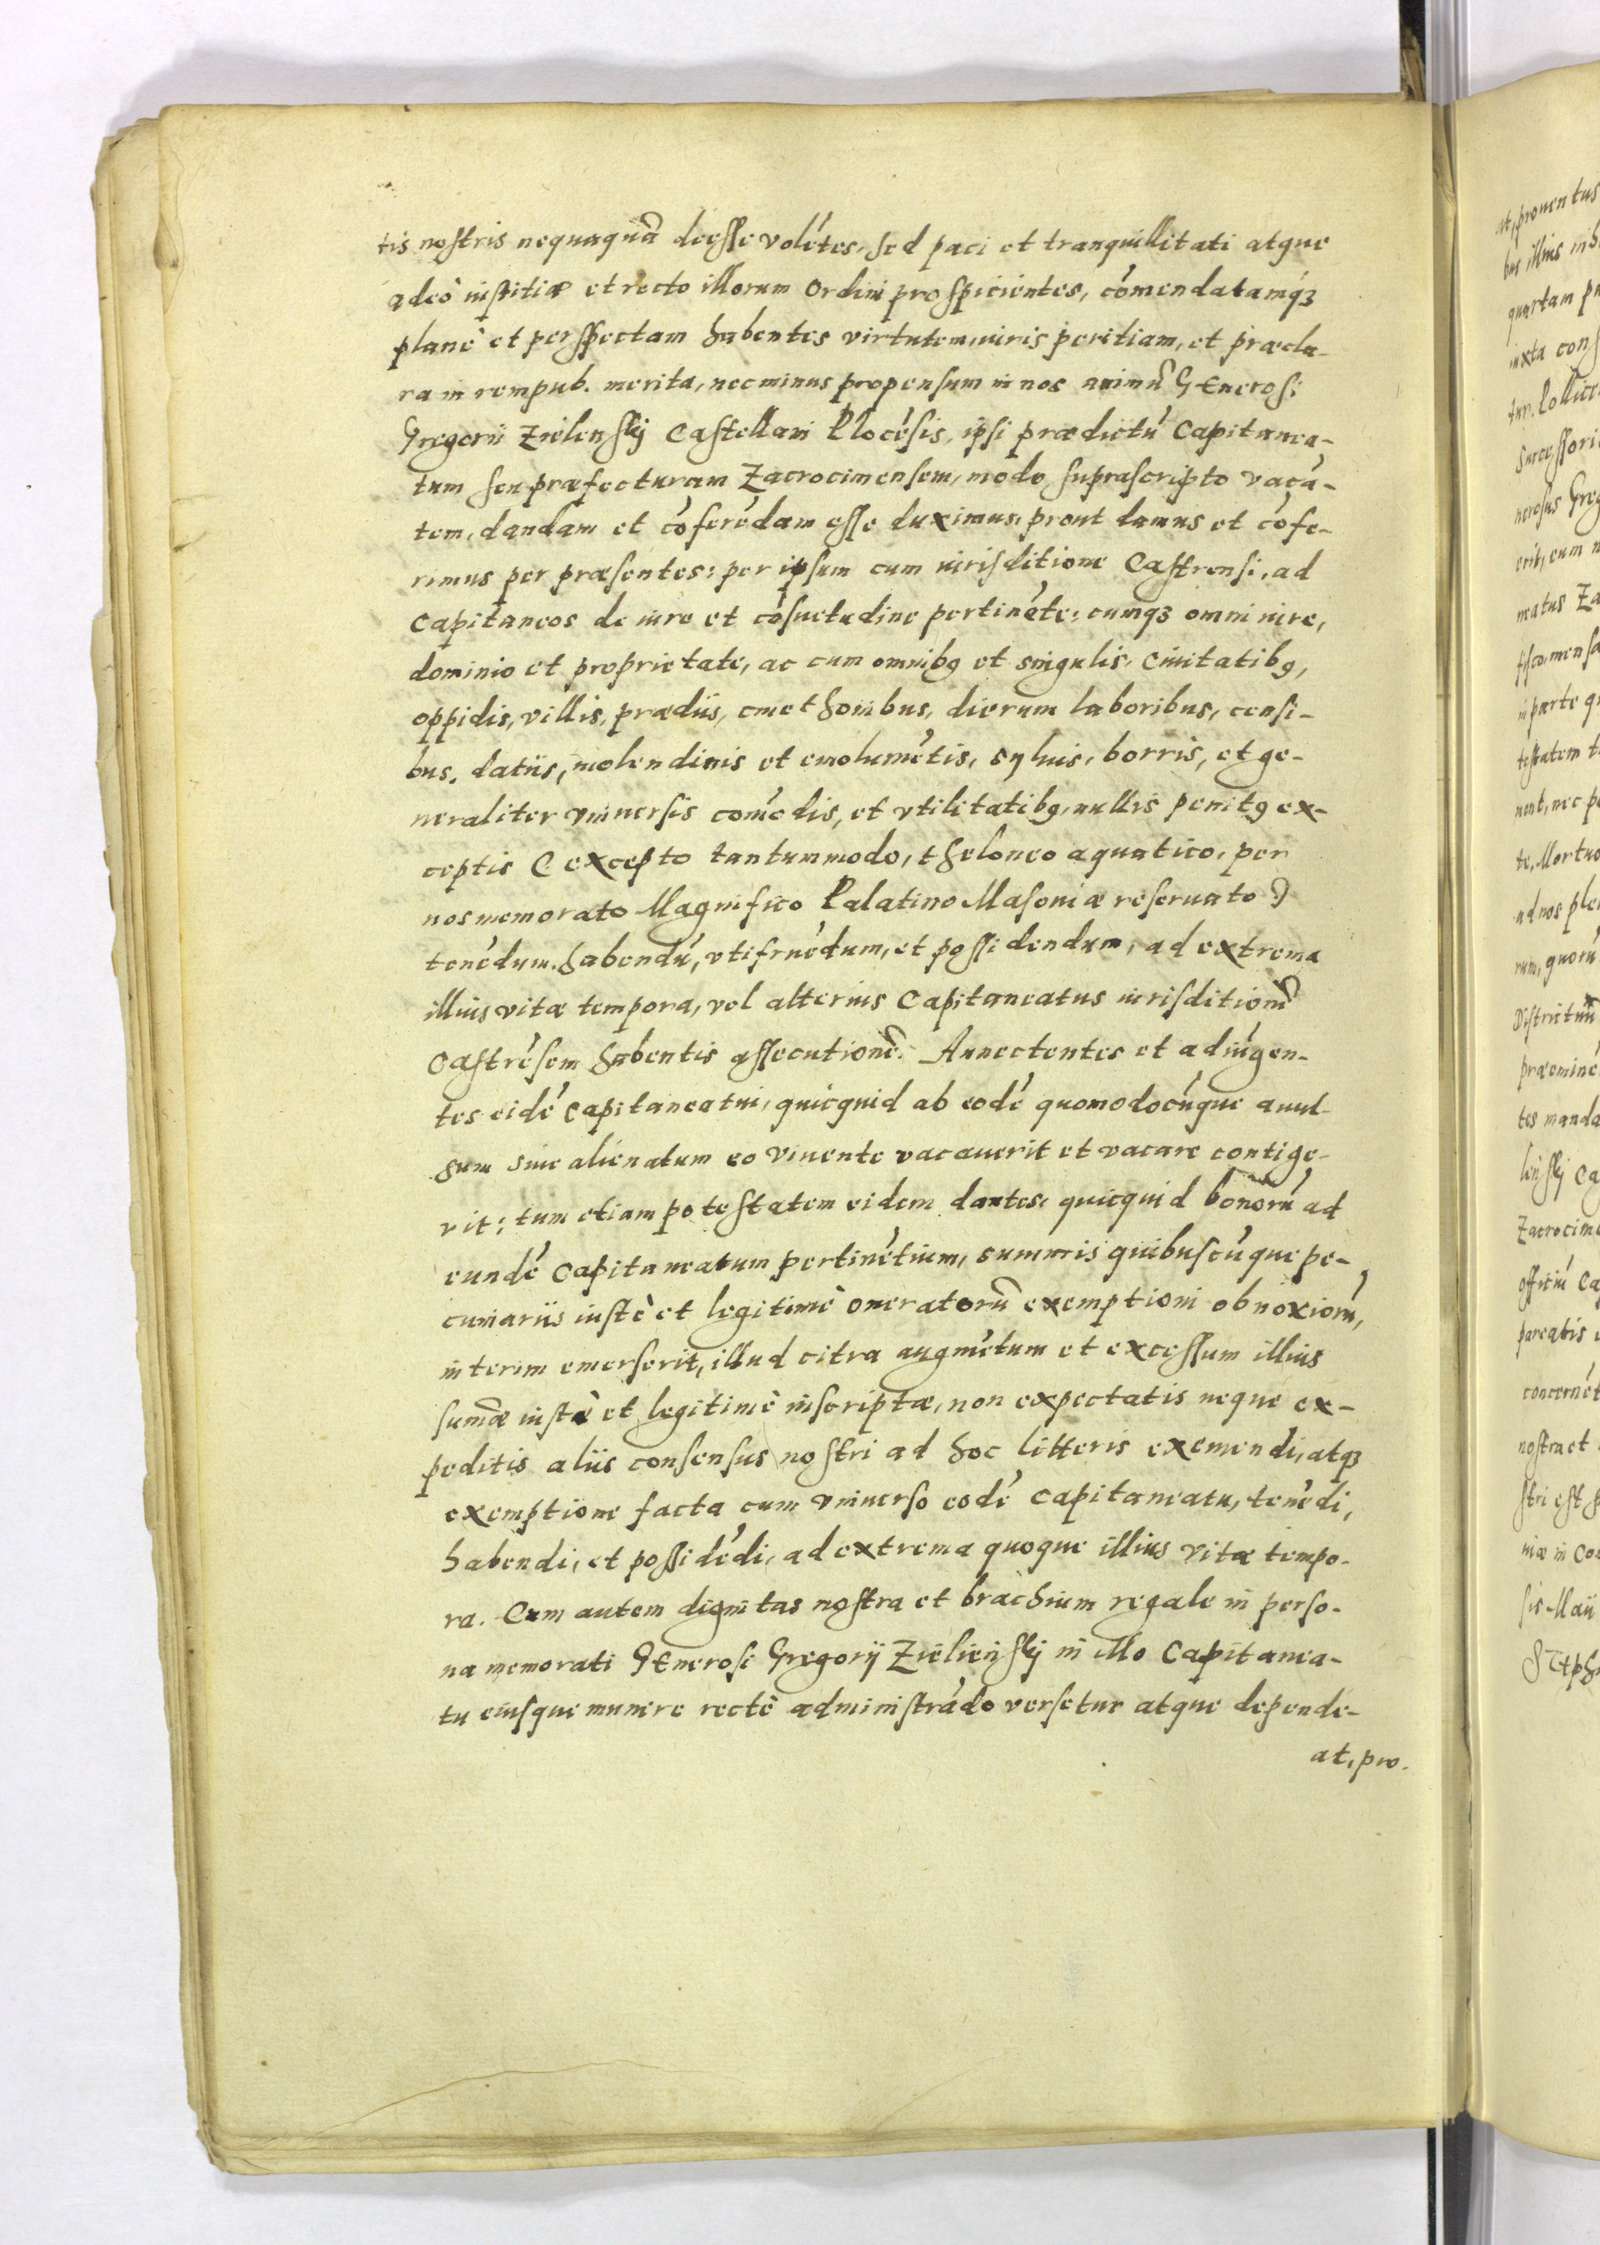 tis nostris nequaquã deesse volétes, sed paci et tranquillitati atque
adeò iustitiæ et recto illorum ordini prospicientes, cómendatamq3
planè et perspectam habentes virtutem, iuris peritiam, et præcla-
ra in rempub. merita, nec minus propensum in nos animũ Generosi
Gregorii Zielenskij Castellani Plocésis, ipsi prædictú Capitanea-
tum seu præfecturam Zacrocimensem, modo suprascripto vacá-
tem, dandam et cóferédam esse duximus, prout damus et cófe-
rimus per præsentes: per ipsum cum iurisditione Castrensi, ad
Capitaneos de iure et cósuetudine pertinéte: cumq3 omni iure,
dominio et proprietate, ac cum omnibg et singulis, Ciuitatibg,
oppidis, villis, prædiis, cmethonibus, dierum laboribus, censi-
bus, datiis, molendinis et emolumétis, syluis, borris, et ge-
neraliter vniuersis comédis, et vtilitatibg, nullis penitg ex-
ceptis (excepto tantummodo, theloneo aquatico, per
nos memorato Magnifico Palatino Masoniæ reseruato)
tenédum, habendú, vtifruédum, et possidendum, ad extrema
illius vitæ tempora, vel alterius Capitaneatus iurisditionẽ
Castrésem habentis assecutionẽ. Annectentes et adiúgen-
tes eidé Capitaneatui, quicquid ab eodé quomodocúque auul-
sum siue alienatum eo viuente vacauerit et vacare contige-
rit: tum etiam potestatem eidem dantes, quicquid bonorú ad
eundé Capitaneatum pertinétium, summis quibuscúque pe-
cuniariis iustè et legitimè oneratorũ exemptioni obnoxiorú,
interim emerserit, illud citra augmétum et excessum illius
sumæ iustè et legitimè inscriptæ, non expectatis neque ex-
peditis aliis consensus nostri ad hoc litteris eximendi, atq3
exemptione facta cum vniuerso eodé Capitaneatu, tenédi,
habendi, et possidédi, ad extrema quoque illius vitæ tempo-
ra. Cum autem dignitas nostra et brachium regale in perso-
na memorati Generosi Gregorij Zielienskij in illo Capitanea-
tu eiusque munere rectè administrádo versetur atque depende-
at, pro-